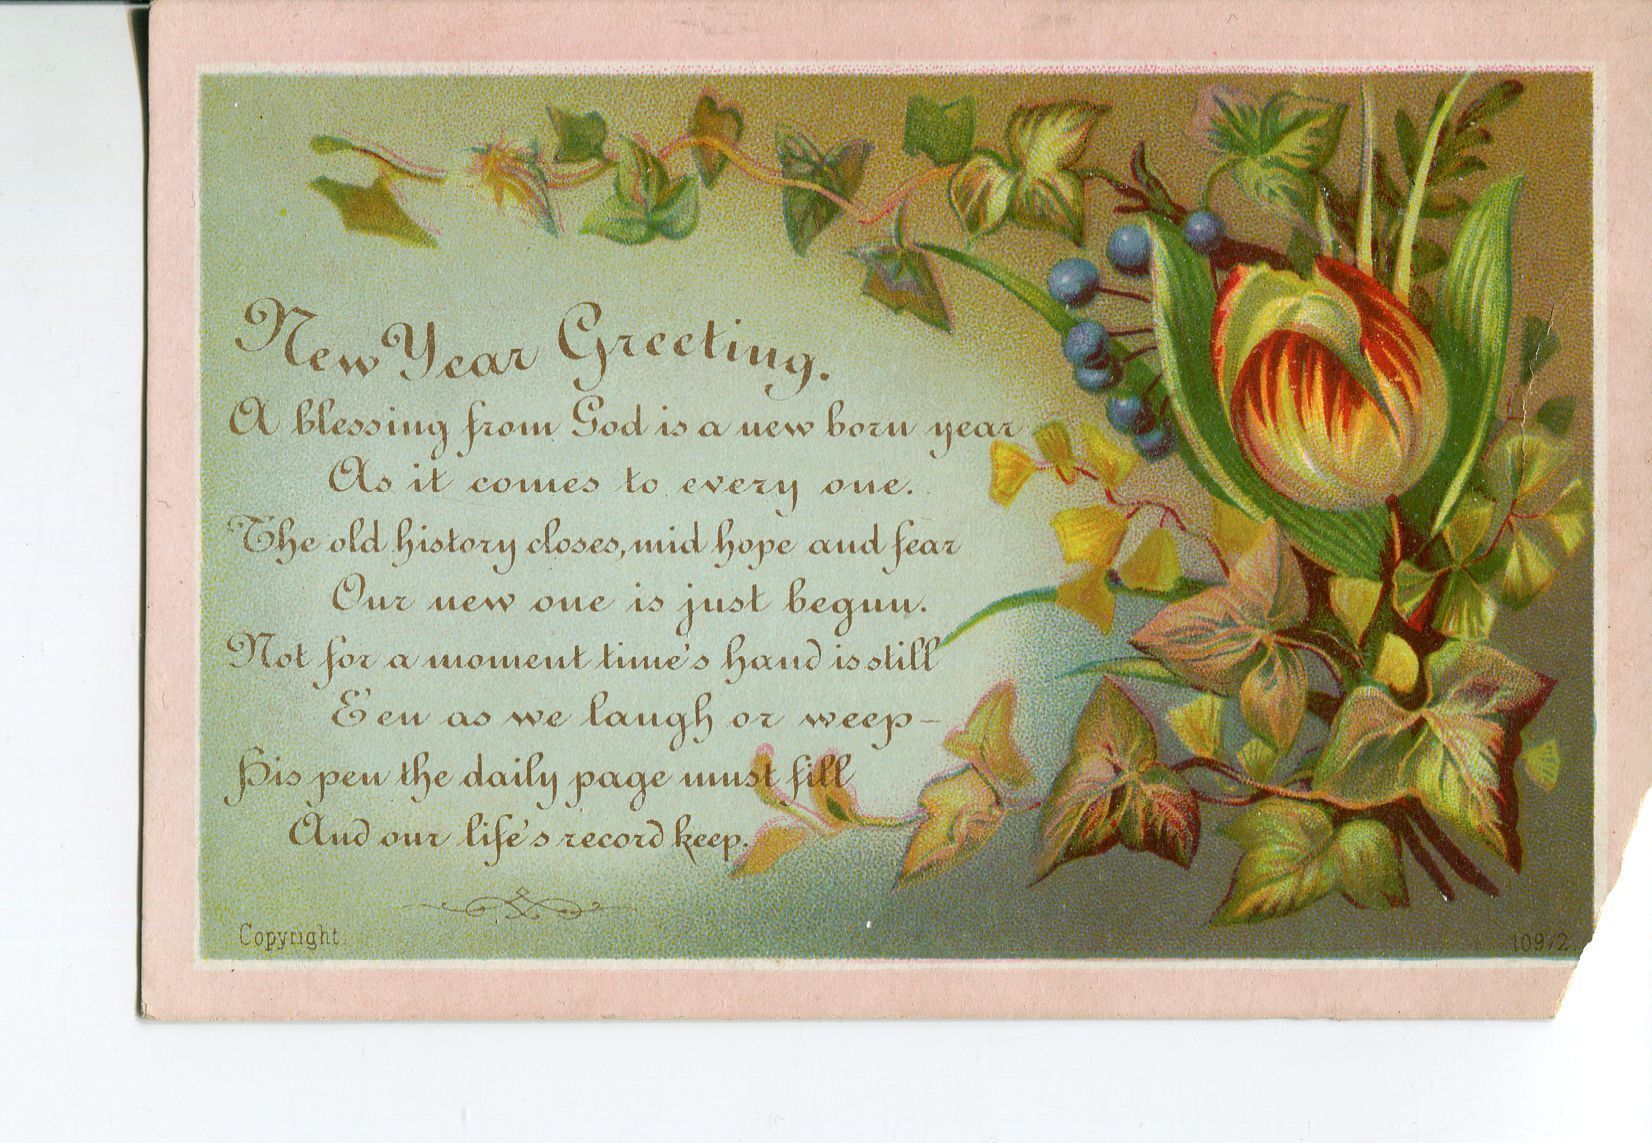 New Year Greeting.
A blessing from God is a new born year
As it comes to every one.
The old history closes, mid hope and fear
Our new one is just begun.
Not for a moment time's hand is still
E'en as we laugh or weep-
His pen the daily page must fill
And our life's record keep.
Copyright.
109/2